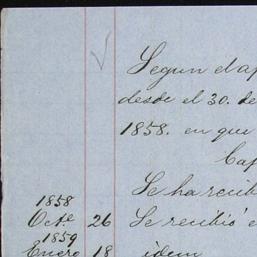 Segun el ap
desde el 30. de
1858. en que
Cap
Se ha recib
1858
Oct.e 26 Se recibió e
1859
Enero 18 idem